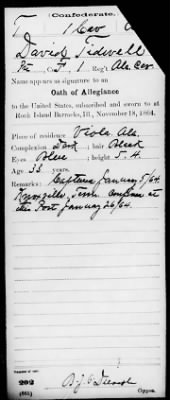 (Confederate.)
T 1 Cav
David Tidwell
Pvt Co. F, 1 Reg't Ala Cav.
Name appears as signature to an
Oath of Allegiance
to the United States, subscribed and sworn to at
Rock Island Barracks, Ill., November 18, 1864.
Place of residence Viola Ala.
Complexion Dark ; hair Black
Eyes Blue ; height 5. 4.
Age 33 years.
Remarks: Captured January 5/64
Knoxville, Tenn
this Post January 26/64.
Number of roll:
292
(861)
Copyist.